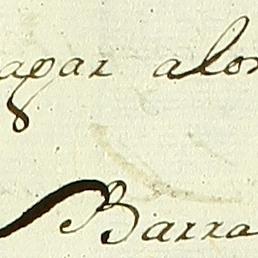 agar alon
Barra